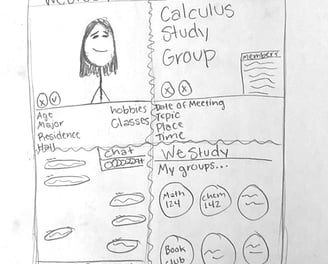 Calculus
Study
Group
Members
x
✓
x
x
Age
Major
Residence
Hall
hobbies
Classes
Date of Meeting
Topic
Place
Time
Chat
WeStudy
My groups...
Math
124
Chem
142
Book
club